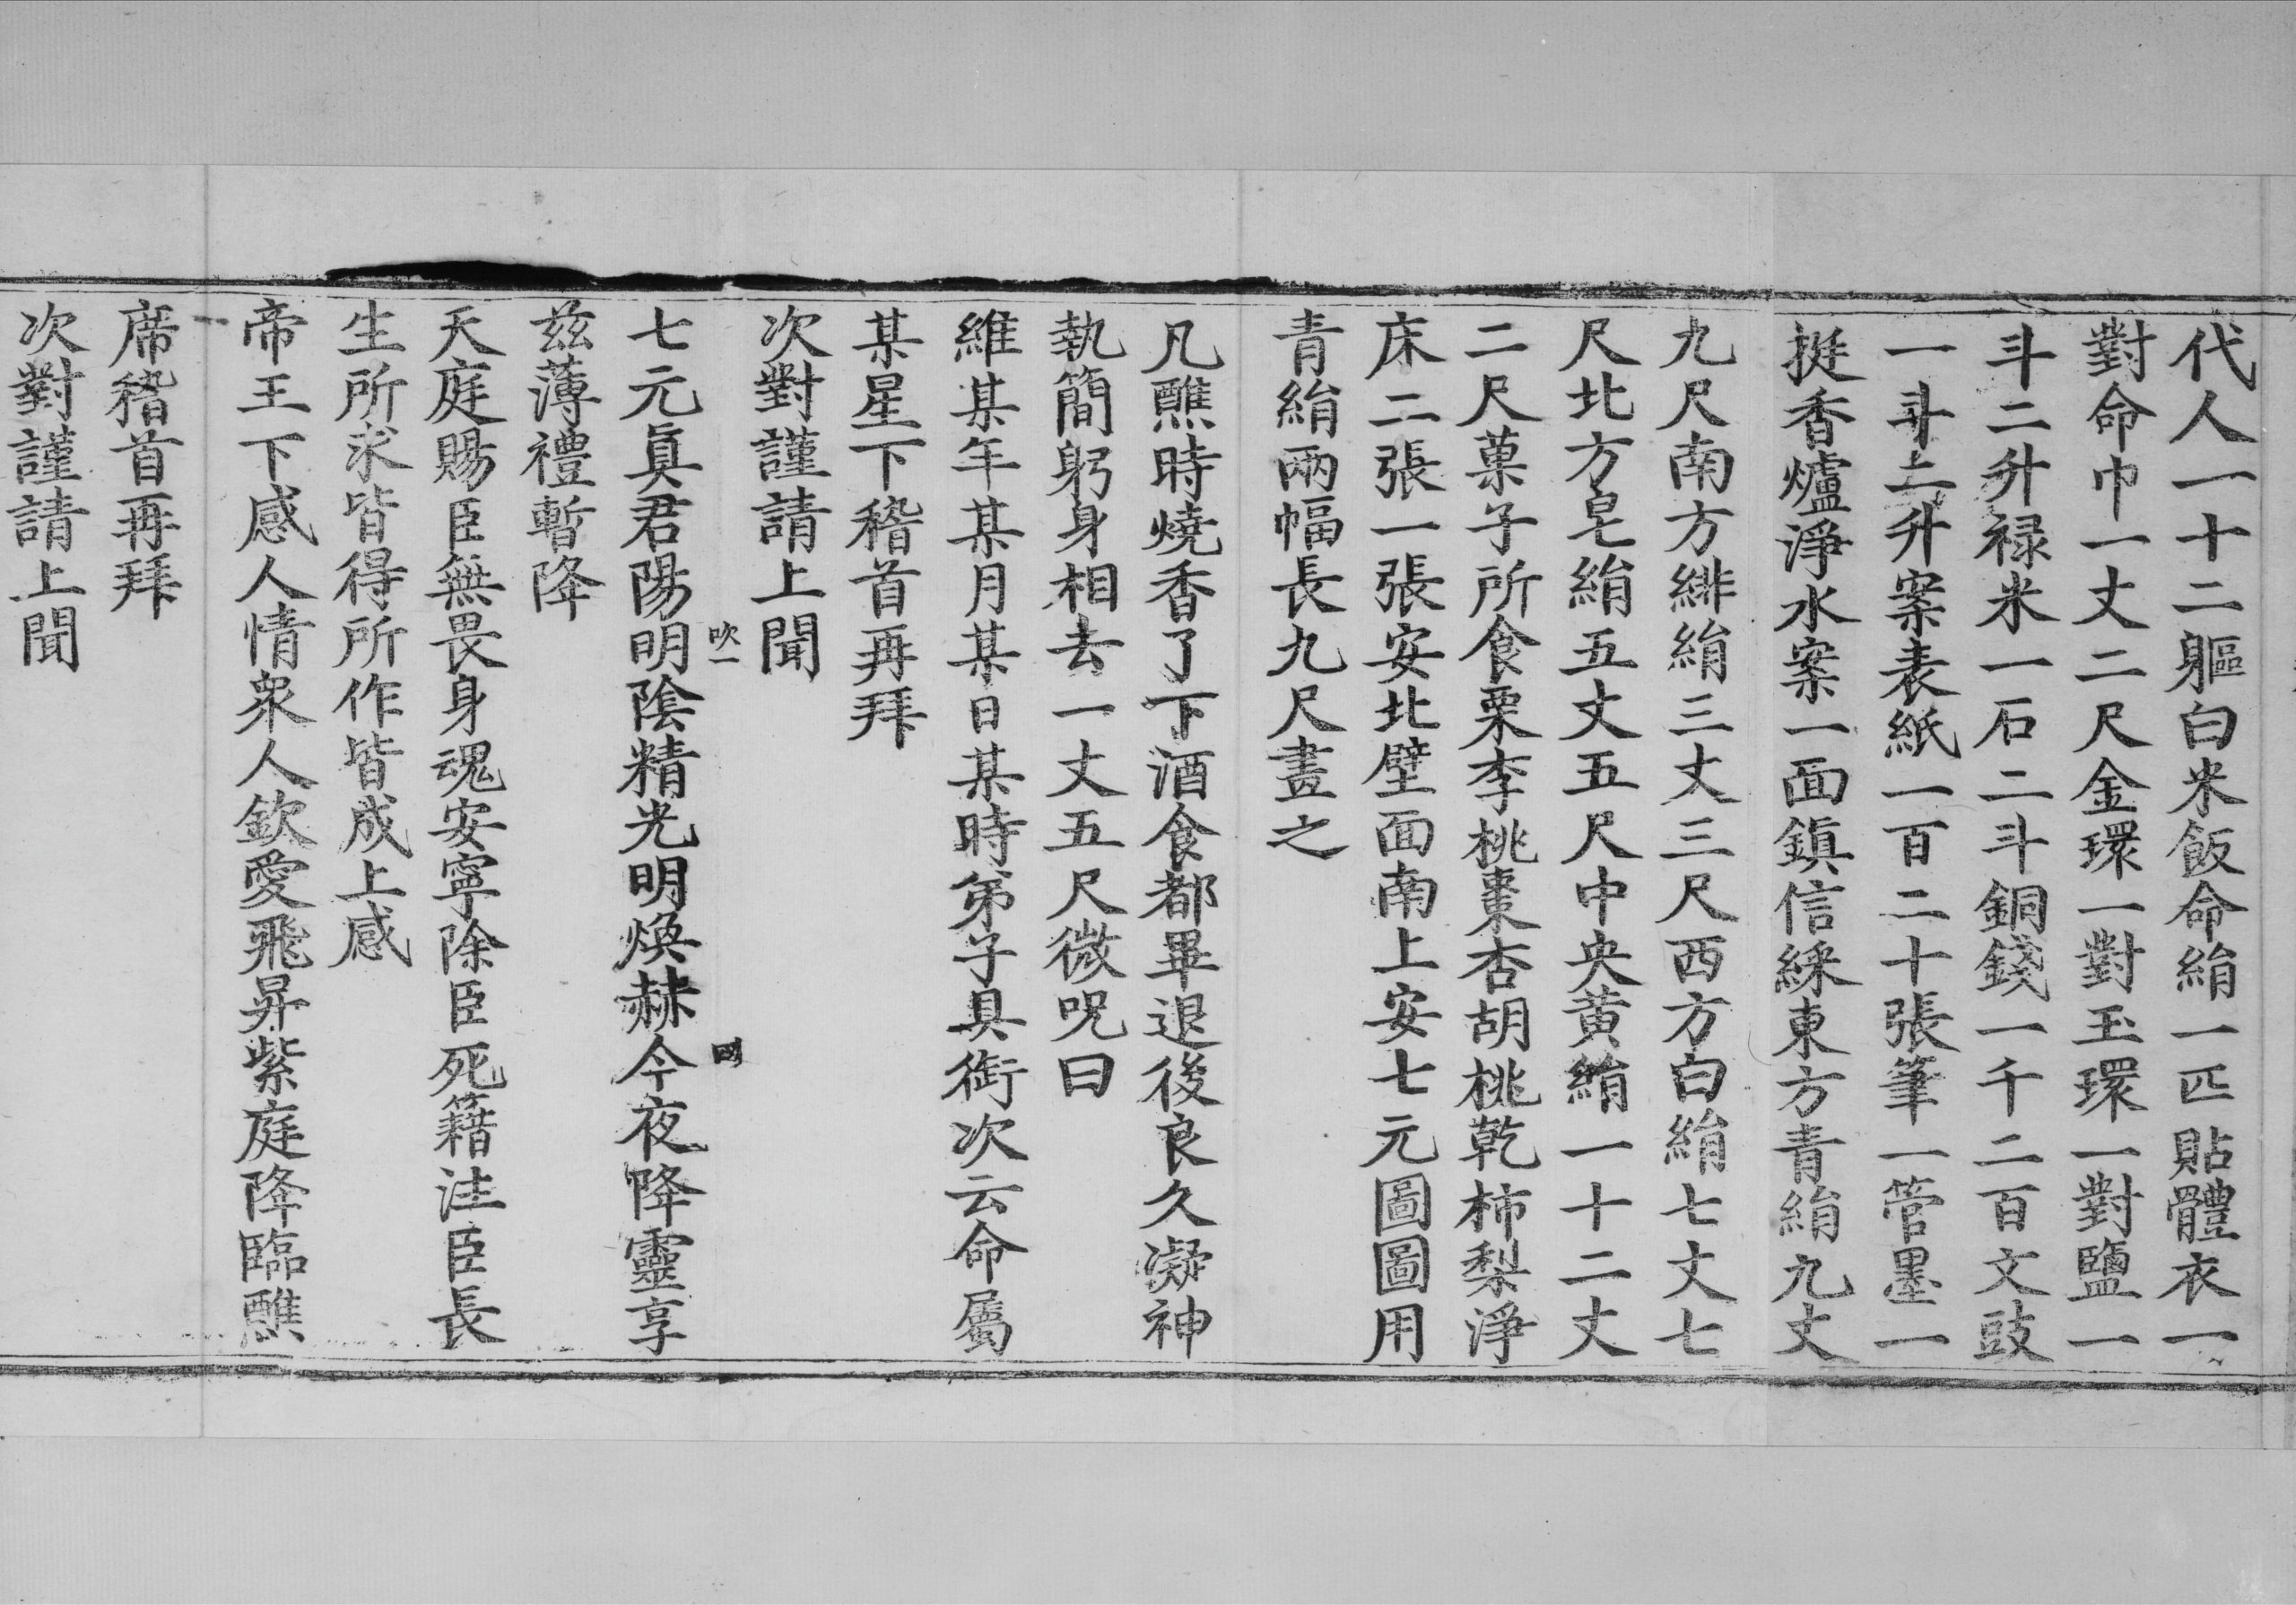 代人一十二軀白米飯命絹一匹貼體衣一
對命巾一丈二尺金環一對玉環一對鹽一
斗二升禄米一石二斗銅錢一千二百文豉
一斗二升案表紙一百二十張筆一管墨一
挺香爐淨水案一面鎮信綵東方青絹九丈
九尺南方緋絹三丈三尺西方白絹七丈七
尺北方皂絹五丈五尺中央黄絹一十二丈
二尺菓子所食栗李桃棗杏胡桃乾柿梨淨
床二張一張安北壁面南上安七元圖圖用
青絹兩幅長九尺畫之
凡醮時燒香了下酒食都畢退後良久凝神
執簡躬身相去一丈五尺微呪曰
維某年某月某日某時弟子具銜次云命屬
某星下稽首再拜
次對謹請上聞
吹一
七元真君陽明陰精光明煥赫今夜降靈享
兹薄禮暫降
天庭賜臣無畏身魂安寧除臣死籍注臣長
生所求皆得所作皆成上感
帝王下感人情衆人欽愛飛昇紫庭降臨醮
席稽首再拜
次對謹請上聞